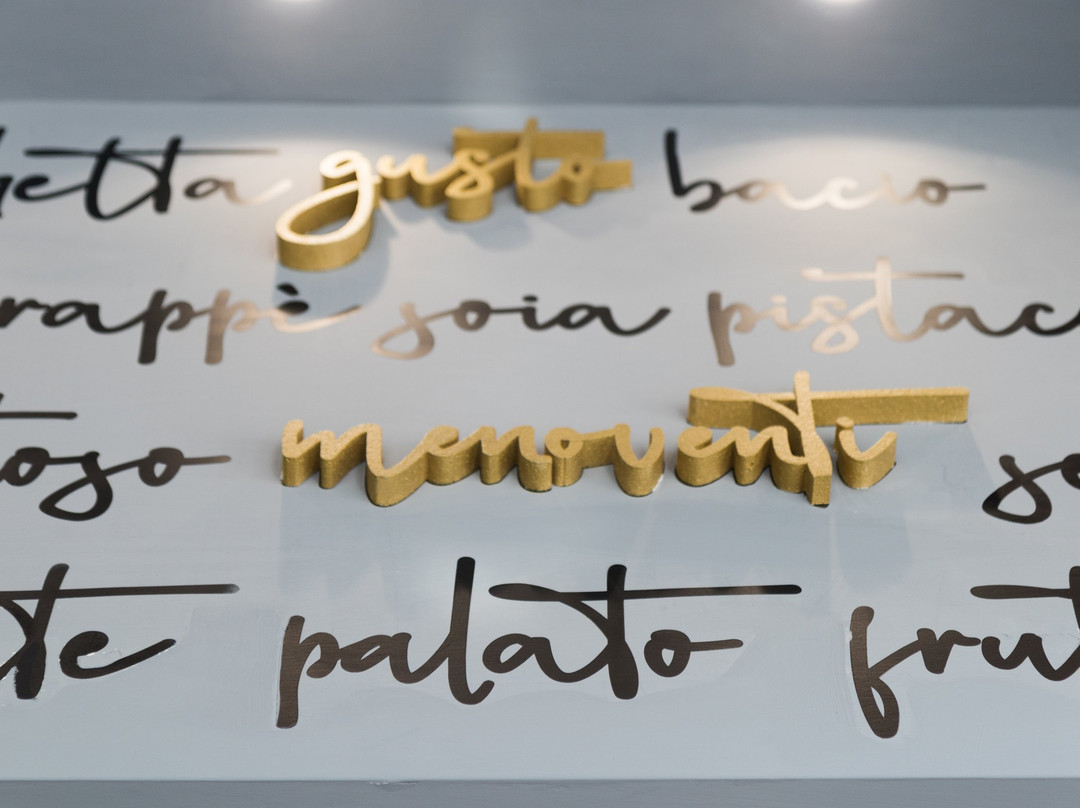 etta gusto bacio
rappè soia pistac
toso menoventi so
te palato frut